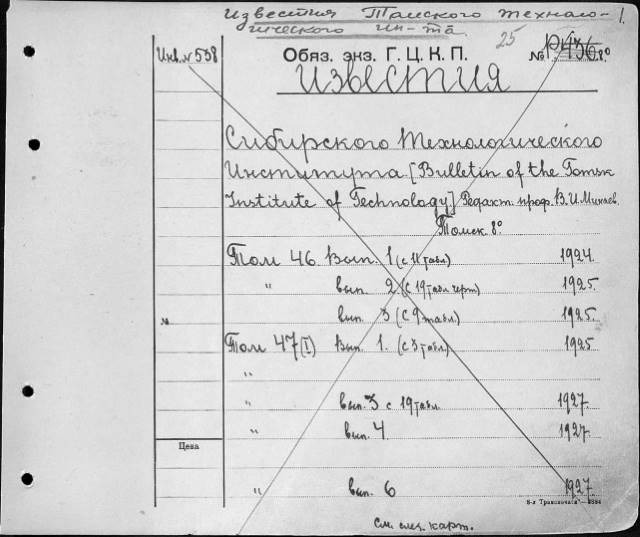 Известия Томского техноло- 1.
гического ин-та.
25
Инв. № 538 Обяз. экз. Г. Ц. К. П. № Р 436 8°
Известия
Сибирского Технологического
Института [Bulletin of the Tomsk
Institute of Technology] Редакт. проф. В. И. Минаев.
Томск 8°
Том 46 Вып. 1 (с 11 табл) 1924.
" вып. 2 (с 19 табл черт) 1925.
№ вып. 3 (с 9 табл.) 1925.
Том 47 (I) Вып. 1. (с 3 табл.) 1925
"
" вып. 3 с 19 табл. 1927.
" вып. 4 1927.
Цена
" вып. 6 1927.
См. след. карт.